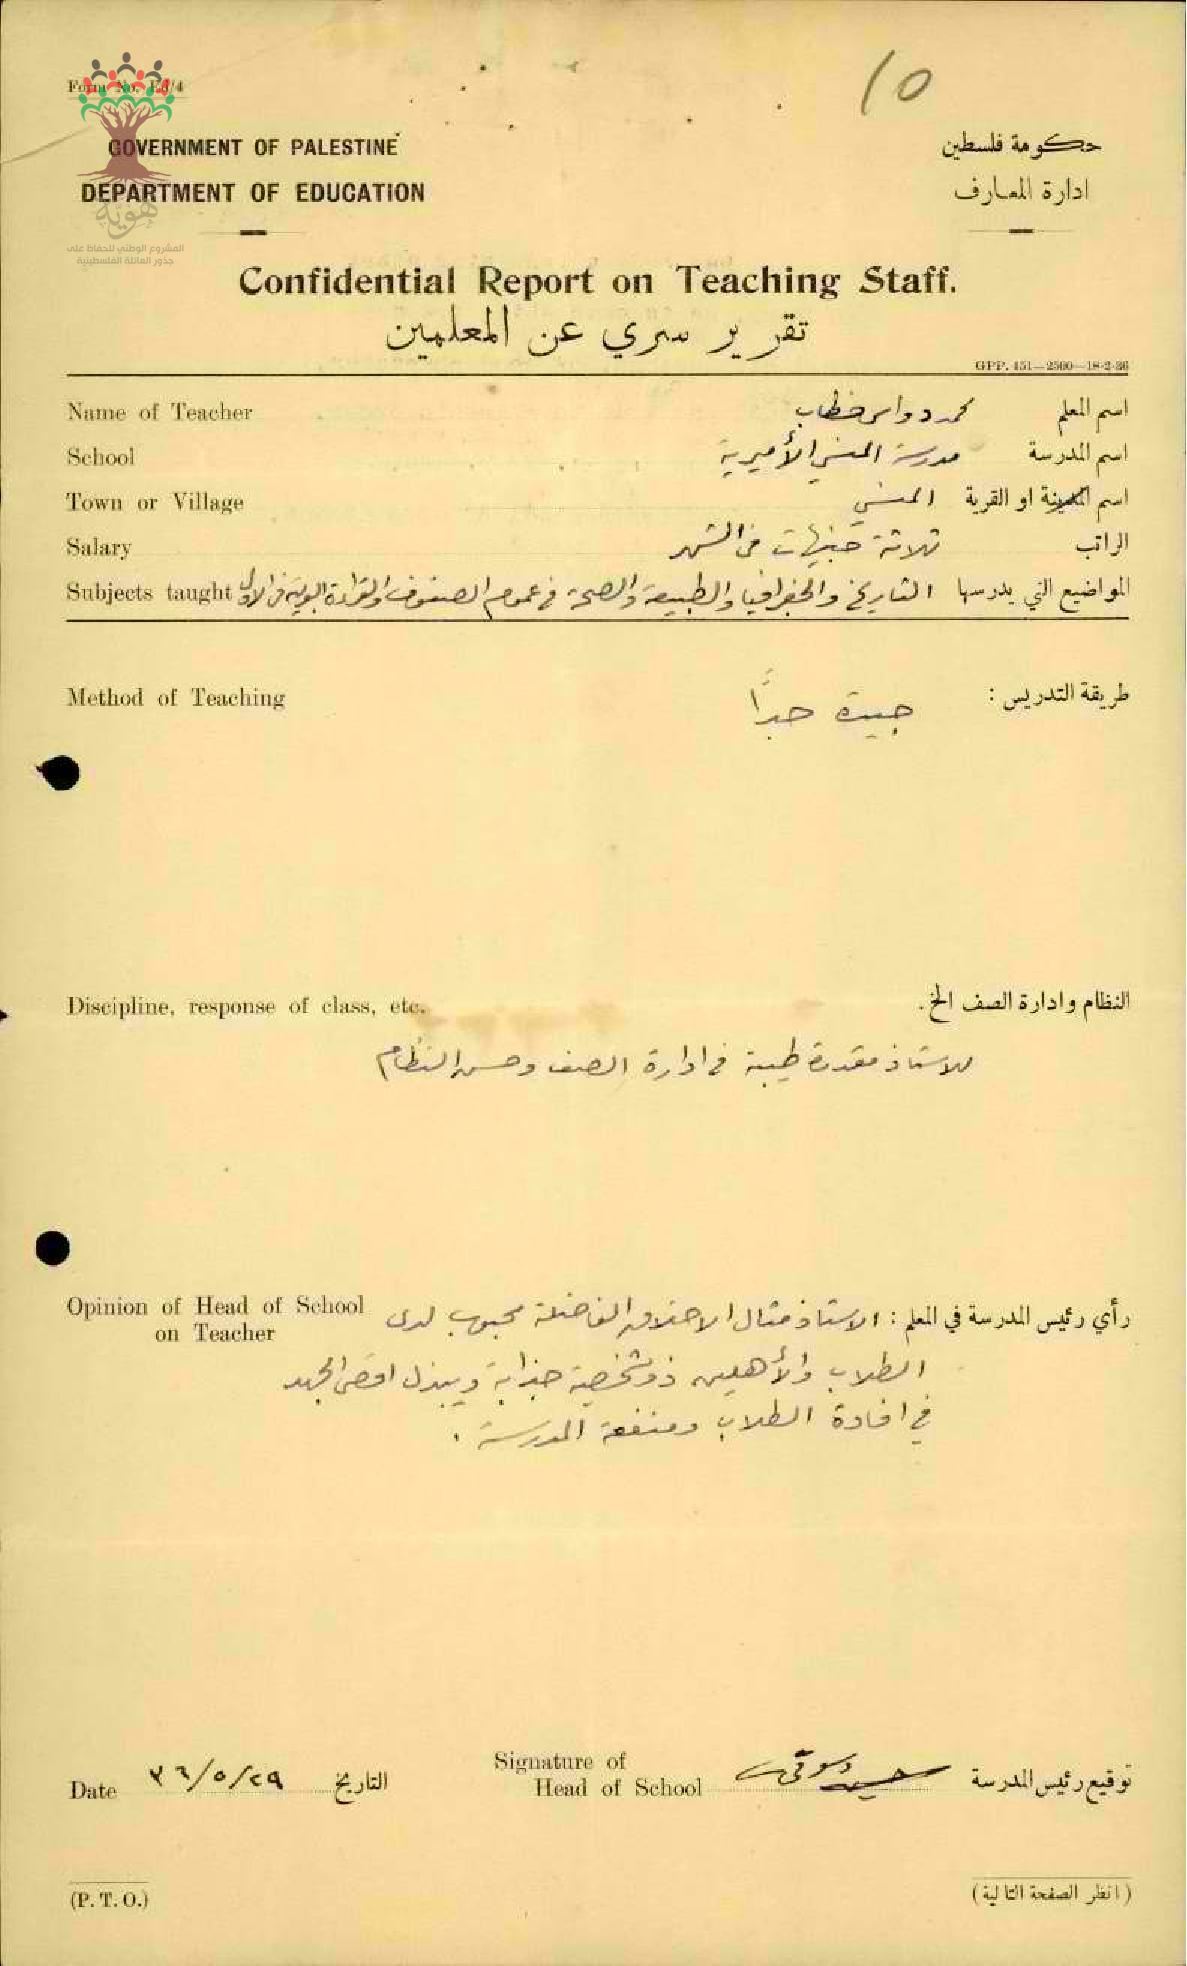 10
Form No. Ed/4
GOVERNMENT OF PALESTINE
حكومة فلسطين
DEPARTMENT OF EDUCATION
ادارة المعارف
هوية
المشروع الوطني للحفاظ على
جذور العائلة الفلسطينية
Confidential Report on Teaching Staff.
تقرير سري عن المعلمين
GPP. 451—2500—18-2-36
Name of Teacher محمد دواس خطاب اسم المعلم
School مدرسة المنسي الأميرية اسم المدرسة
Town or Village المنسي اسم المدينة او القرية
Salary ثلاثة جنيهات في الشهر الراتب
Subjects taught التاريخ والجغرافيا والطبيعة والصحة في عموم الصفوف والقراءة في الاول المواضيع التي يدرسها
Method of Teaching طريقة التدريس :
جيدة جداً
Discipline, response of class, etc. النظام وادارة الصف الخ.
للاستاذ مقدرة طيبة في ادارة الصف وحسن النظام
Opinion of Head of School on Teacher رأي رئيس المدرسة في المعلم : الاستاذ مثال الاخلاق الفاضلة محبوب لدى
الطلاب والأهلين ذو شخصية جذابة ويبذل اقصى الجهد
في افادة الطلاب ومنفعة المدرسة .
Signature of Head of School حسن توقيع رئيس المدرسة
Date ٣٦/٥/٢٩ التاريخ
(P. T. O.)
(انظر الصفحة التالية)